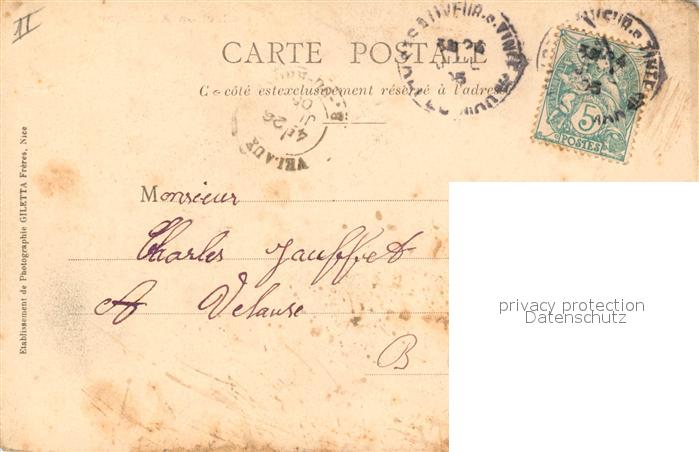 II
CARTE POSTALE
Ce côté est exclusivement réservé à l'adresse
5
POSTES
VELAUX
Monsieur
Charles Jauffret
A Velaux
B
Etablissement de Photographie GILETTA Frères, Nice
privacy protection
Datenschutz